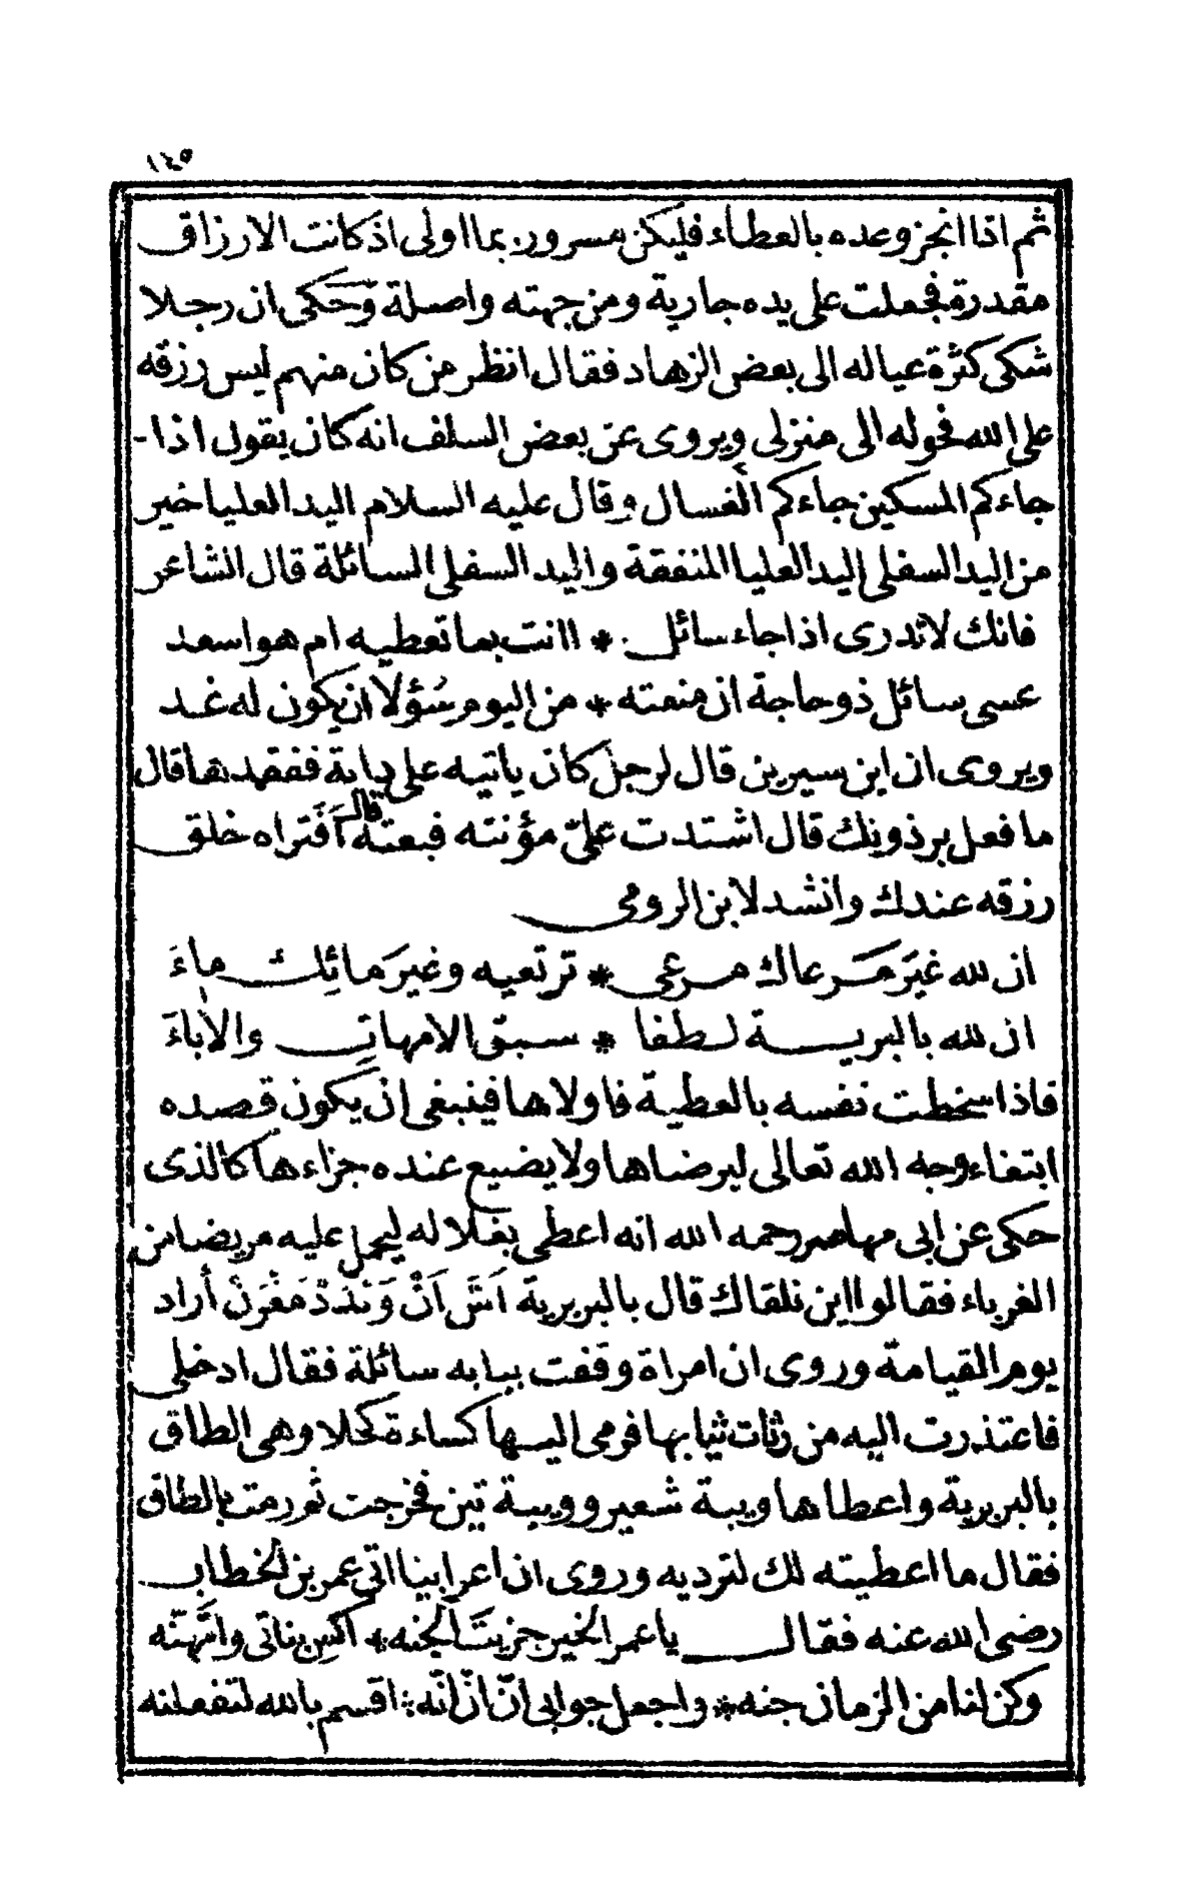 ١٤٥
ثم اذا انجز وعده بالعطاء فليكن مسرورا بما اولى اذ كانت الارزاق
مقدرة فجعلت على يده جارية ومن جهته واصلة وحكى ان رجلا
شكى كثرة عياله الى بعض الزهاد فقال انظر من كان منهم ليس رزقه
على الله فحوله الى منزلى ويروى عن بعض السلف انه كان يقول اذا
جاءكم المسكين جاءكم الغسال وقال عليه السلام اليد العليا خير
من اليد السفلى اليد العليا المنفقة واليد السفلى السائلة قال الشاعر
فانك لا تدرى اذا جاء سائل * اانت بما تعطيه ام هو اسعد
عسى سائل ذو حاجة ان منعته * من اليوم سُؤلا ان يكون له غد
ويروى ان ابن سيرين قال لرجل كان ياتيه على دابة ففقدها قال
ما فعل برذونك قال اشتدت علىّ مؤنته فبعته قال اَفَتراه خلق
رزقه عندك وانشد لابن الرومى
ان لله غيَر مَرعاك مرعى * ترتعيه وغيَر مائِك ماءَ
ان لله بالبرية لطفا * سبق الامهاتِ والاٰباءَ
فاذا سخطت نفسه بالعطية فاولاها فينبغى ان يكون قصده
ابتغاء وجه الله تعالى ليرضاها ولا يضيع عنده جزاءها كالذى
حكى عن ابى مهاصر رحمه الله انه اعطى بغلا له ليحمل عليه مريضا من
الغرباء فقالوا اين نلقاك قال بالبربرية اَسَّ اَنْ وَنْدَدْ مَقْرَنْ أراد
يوم القيامة وروى ان امراة وقفت ببابه سائلة فقال ادخلى
فاعتذرت اليه من رثاث ثيابها فرمى اليها كساءة كحلا وهى الطاق
بالبربرية واعطاها ويبة شعير وويبة تين فخرجت ثم رمت بالطاق
فقال ما اعطيته لك لترديه وروى ان اعرابيا اتى عمر بن الخطاب
رضى الله عنه فقال يا عمر الخير جزيتَ الجنه * اكسِ بناتى وامّهنّه
وكن لنا من الزمان جنه * واجعل جوابى انّ انّ انّه * اقسم بالله لتفعلنه